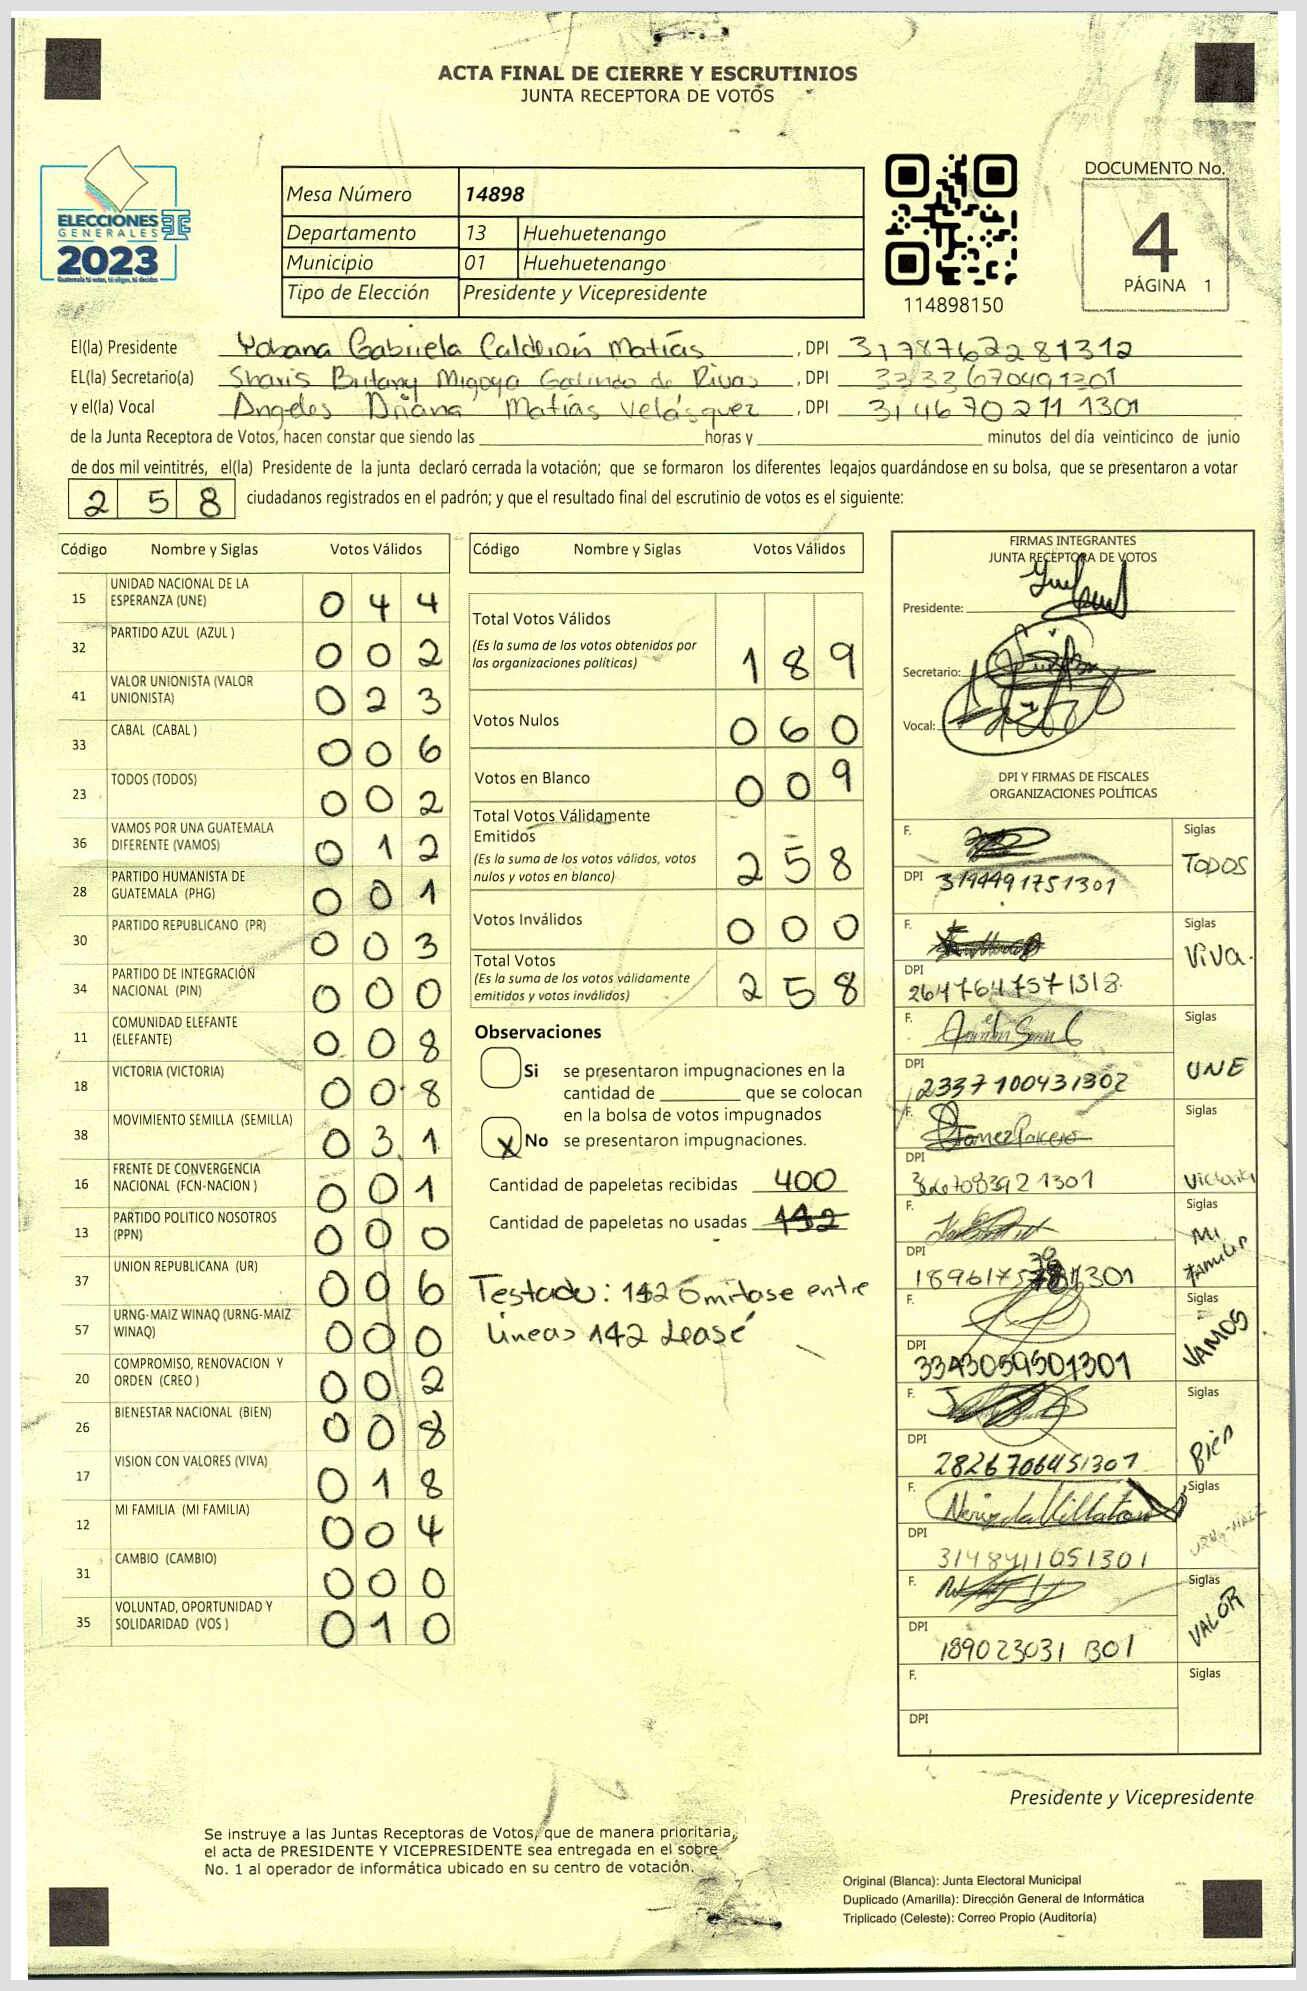 ACTA FINAL DE CIERRE Y ESCRUTINIOS
JUNTA RECEPTORA DE VOTOS
ELECCIONES
GENERALES
2023
Guatemala tú votas, tú eliges, tú decides
Mesa Número 14898
Departamento 13 Huehuetenango
Municipio 01 Huehuetenango
Tipo de Elección Presidente y Vicepresidente
114898150
DOCUMENTO No.
4
PÁGINA 1
El(la) Presidente Yohana Gabriela Calderón Matías, DPI 3178762281312
EL(la) Secretario(a) Sharis Britany Migoya Galindo de Rivas, DPI 3333670491301
y el(la) Vocal Angeles Diana Matías Velásquez, DPI 3146702111301
de la Junta Receptora de Votos, hacen constar que siendo las horas y minutos del día veinticinco de junio
de dos mil veintitrés, el(la) Presidente de la junta declaró cerrada la votación; que se formaron los diferentes legajos guardándose en su bolsa, que se presentaron a votar
258 ciudadanos registrados en el padrón; y que el resultado final del escrutinio de votos es el siguiente:
Código Nombre y Siglas Votos Válidos
15 UNIDAD NACIONAL DE LA ESPERANZA (UNE) 044
32 PARTIDO AZUL (AZUL ) 002
41 VALOR UNIONISTA (VALOR UNIONISTA) 023
33 CABAL (CABAL ) 006
23 TODOS (TODOS) 002
36 VAMOS POR UNA GUATEMALA DIFERENTE (VAMOS) 012
28 PARTIDO HUMANISTA DE GUATEMALA (PHG) 001
30 PARTIDO REPUBLICANO (PR) 003
34 PARTIDO DE INTEGRACIÓN NACIONAL (PIN) 000
11 COMUNIDAD ELEFANTE (ELEFANTE) 008
18 VICTORIA (VICTORIA) 008
38 MOVIMIENTO SEMILLA (SEMILLA) 031
16 FRENTE DE CONVERGENCIA NACIONAL (FCN-NACION ) 001
13 PARTIDO POLITICO NOSOTROS (PPN) 000
37 UNION REPUBLICANA (UR) 006
57 URNG-MAIZ WINAQ (URNG-MAIZ WINAQ) 000
20 COMPROMISO, RENOVACION Y ORDEN (CREO ) 002
26 BIENESTAR NACIONAL (BIEN) 008
17 VISION CON VALORES (VIVA) 018
12 MI FAMILIA (MI FAMILIA) 004
31 CAMBIO (CAMBIO) 000
35 VOLUNTAD, OPORTUNIDAD Y SOLIDARIDAD (VOS ) 010
Código Nombre y Siglas Votos Válidos
Total Votos Válidos 189
(Es la suma de los votos obtenidos por las organizaciones políticas)
Votos Nulos 060
Votos en Blanco 009
Total Votos Válidamente Emitidos 258
(Es la suma de los votos válidos, votos nulos y votos en blanco)
Votos Inválidos 000
Total Votos 258
(Es la suma de los votos válidamente emitidos y votos inválidos)
Observaciones
Si se presentaron impugnaciones en la
cantidad de que se colocan
en la bolsa de votos impugnados
X No se presentaron impugnaciones.
Cantidad de papeletas recibidas 400
Cantidad de papeletas no usadas 142
Testado: 142 Omitase entre
líneas 142 Leasé
FIRMAS INTEGRANTES
JUNTA RECEPTORA DE VOTOS
Presidente:
Secretario:
Vocal:
DPI Y FIRMAS DE FISCALES
ORGANIZACIONES POLÍTICAS
F. Siglas TODOS
DPI 3194491751301
F. Siglas Viva.
DPI 2647647571318
F. Siglas UNE
DPI 2337100431302
F. Siglas Victoria
DPI
F. Siglas Mi Familia
DPI
F. Siglas VAMOS
DPI 3343059501301
F. Siglas Bien
DPI 2826706451301
F. Siglas URNG-MAIZ
DPI 3148411051301
F. Siglas VALOR
DPI 189023031 1301
F. Siglas
DPI
Presidente y Vicepresidente
Se instruye a las Juntas Receptoras de Votos, que de manera prioritaria,
el acta de PRESIDENTE Y VICEPRESIDENTE sea entregada en el sobre
No. 1 al operador de informática ubicado en su centro de votación.
Original (Blanca): Junta Electoral Municipal
Duplicado (Amarilla): Dirección General de Informática
Triplicado (Celeste): Correo Propio (Auditoría)